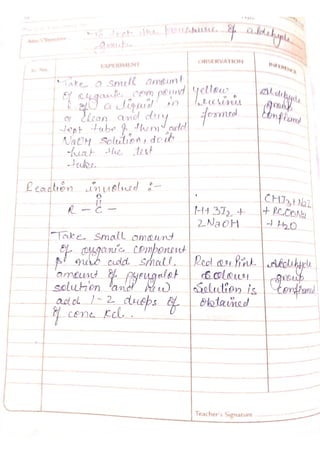 To test the presence of aldehyde
group.
Aim / Objective
Sr. No.
EXPERIMENT
OBSERVATION
INFERENCE
Take a small amount
of organic compound
a liquid in
a clean and dry
test tube & then add
NaOH solution, do it
heat the test
tube.
yellow
formed
Aldehyde
group
confirmed
Reaction involved :-
O
R - C -
+ 3I2 +
2NaOH
CHI3 + NaI
+ RCOONa
+ H2O
Take small amount
of organic component
add small
amount of pyrogalol
solution and now
add 1-2 drops of
of conc Hcl.
Red or Pink
colour
Solution is
obtained
Aldehyde
group
confirmed
Teacher's Signature